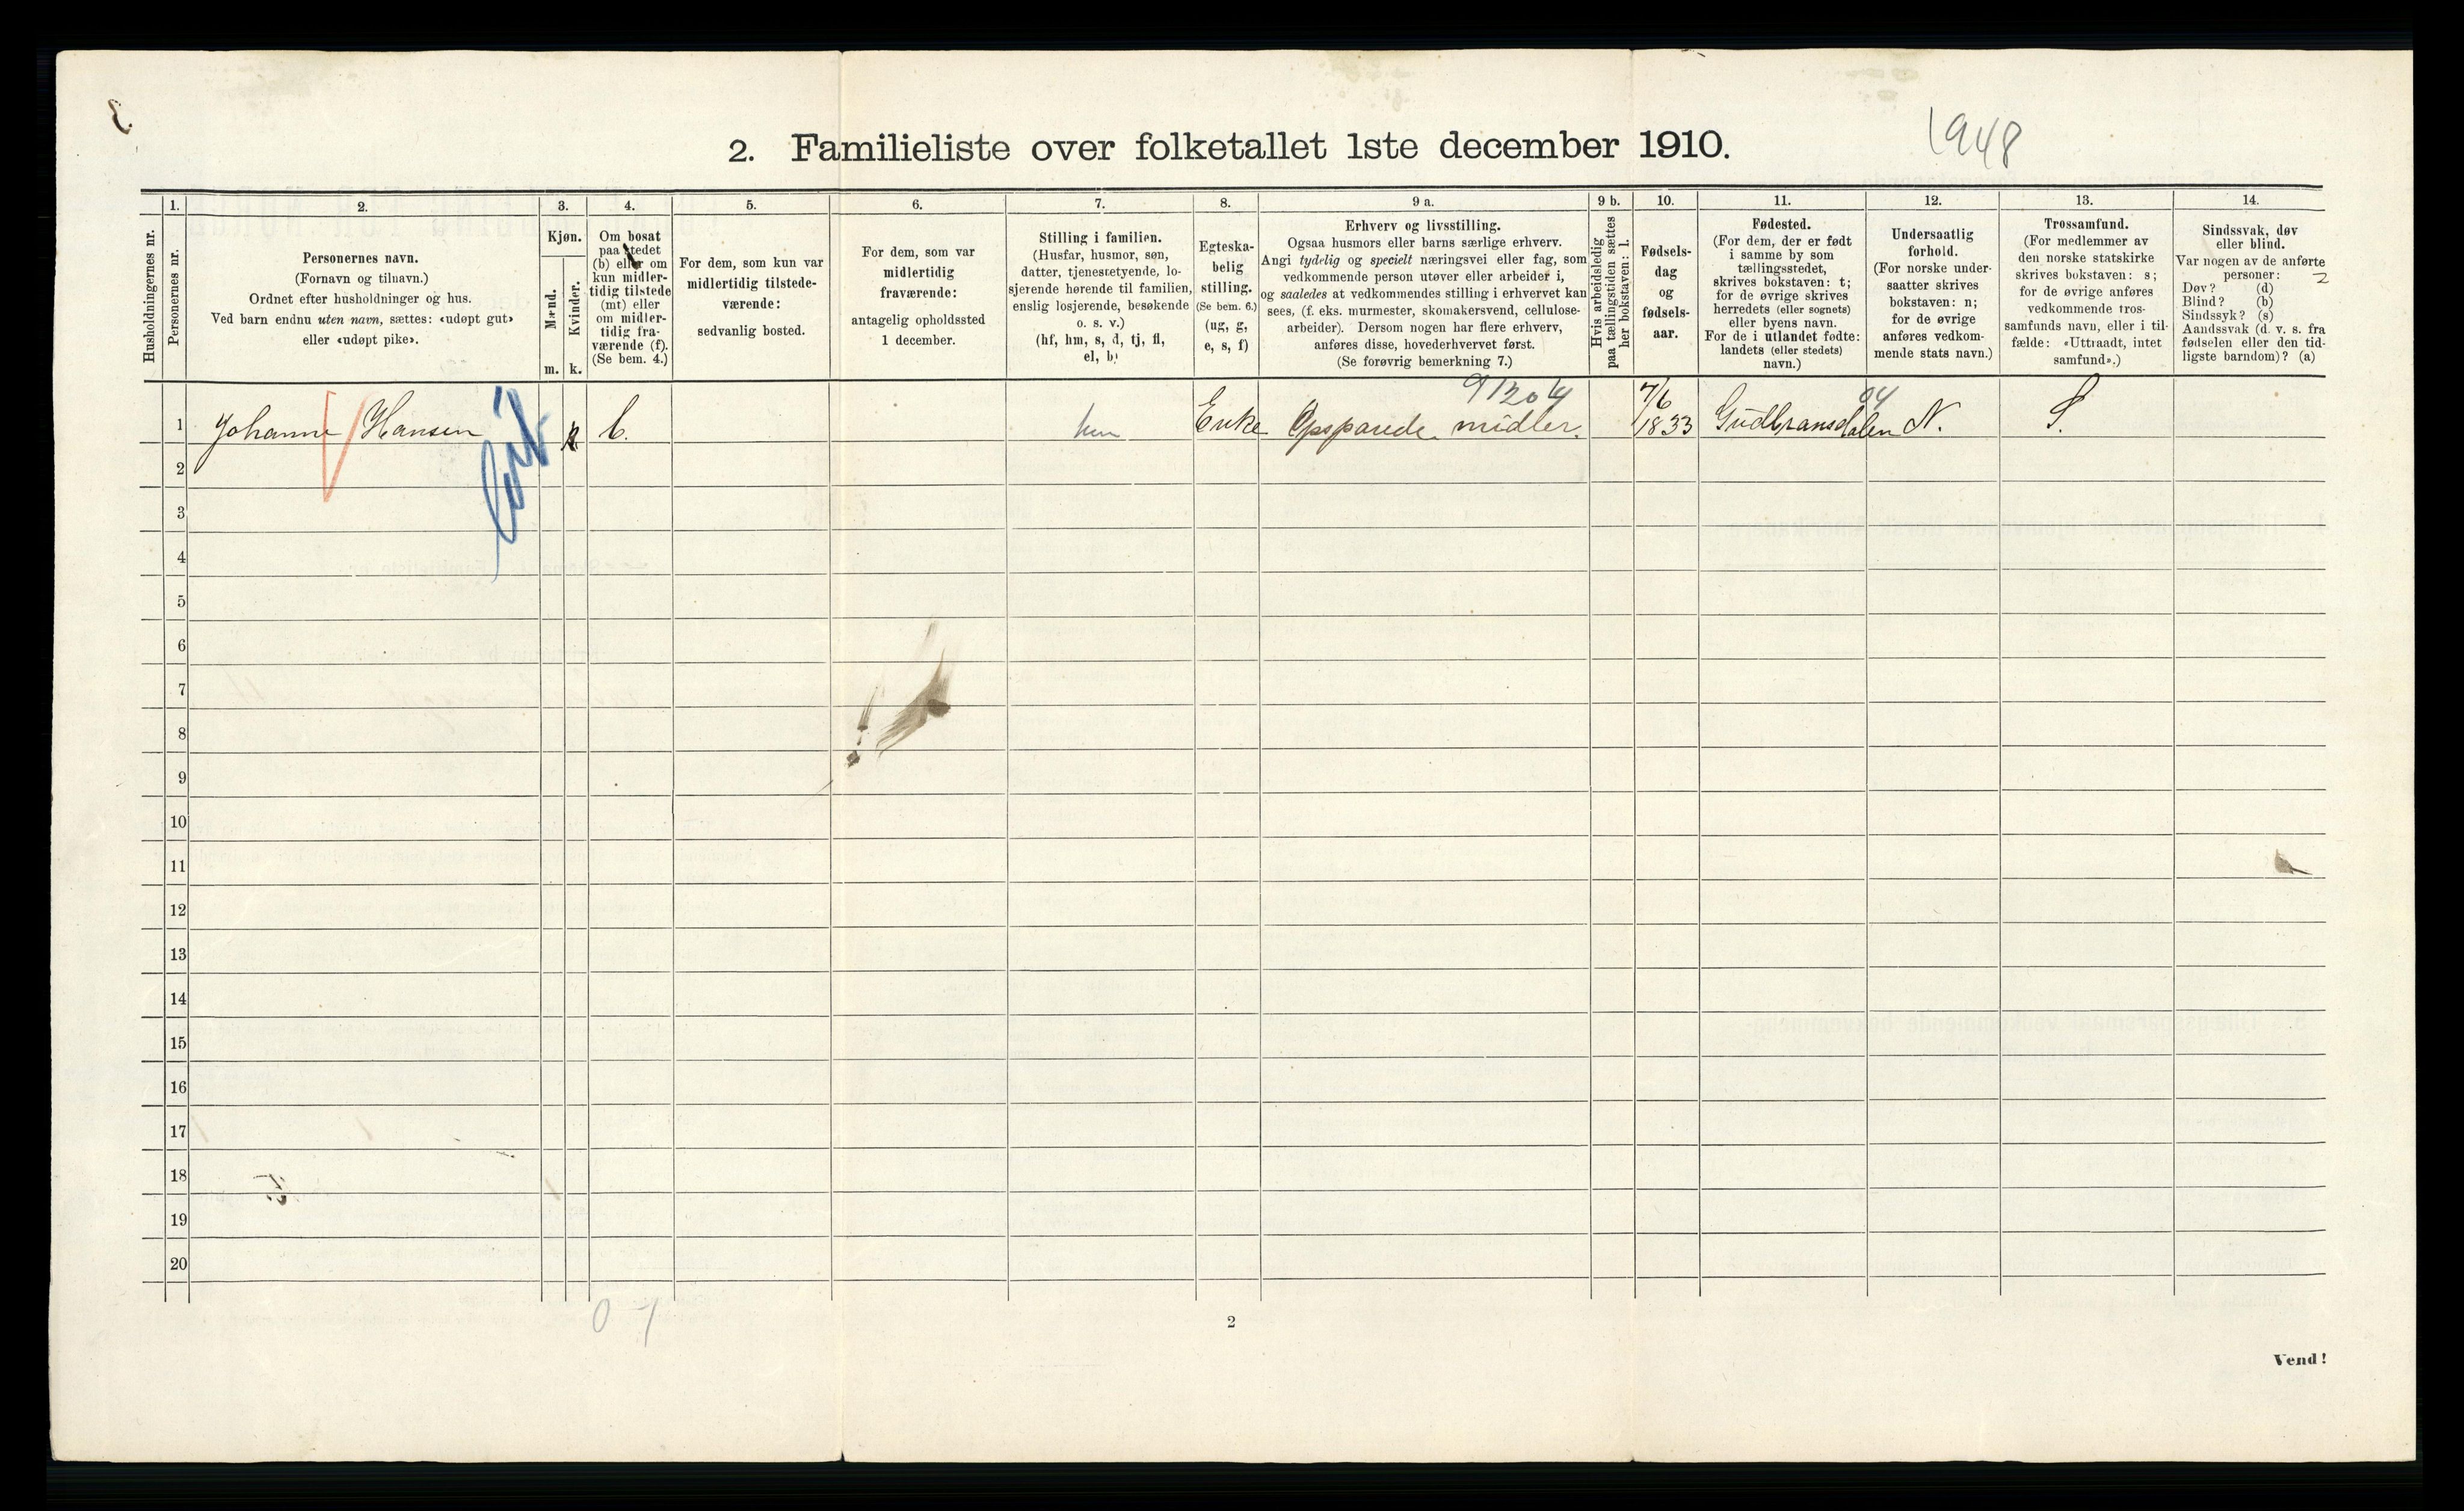 2. Familieliste over folketallet 1ste december 1910.
1948
Husholdningernes nr.
1.
Personernes nr.
2.
Personernes navn.
(Fornavn og tilnavn.)
Ordnet efter husholdninger og hus.
Ved barn endnu uten navn, sættes: «udøpt gut»
eller «udøpt pike».
3.
Kjøn.
Mænd.
Kvinder.
m. k.
4.
Om bosat
paa stedet
(b) eller om
kun midler-
tidig tilstede
(mt) eller
om midler-
tidig fra-
værende (f).
(Se bem. 4.)
5.
For dem, som kun var
midlertidig tilstede-
værende:
sedvanlig bosted.
6.
For dem, som var
midlertidig
fraværende:
antagelig opholdssted
1 december.
7.
Stilling i familien.
(Husfar, husmor, søn,
datter, tjenestetyende, lo-
sjerende hørende til familien,
enslig losjerende, besøkende
o. s. v.)
(hf, hm, s, d, tj, fl,
el, b)
8.
Egteska-
belig
stilling.
(Se bem. 6.)
(ug, g,
e, s, f)
9 a.
Erhverv og livsstilling.
Ogsaa husmors eller barns særlige erhverv.
Angi tydelig og specielt næringsvei eller fag, som
vedkommende person utøver eller arbeider i,
og saaledes at vedkommendes stilling i erhvervet kan
sees, (f. eks. murmester, skomakersvend, cellulose-
arbeider). Dersom nogen har flere erhverv,
anføres disse, hovederhvervet først.
(Se forøvrig bemerkning 7.)
9 b.
Hvis arbeidsledig
paa tællingstiden sættes
her bokstaven: l.
10.
Fødsels-
dag
og
fødsels-
aar.
11.
Fødested.
(For dem, der er født
i samme by som
tællingsstedet,
skrives bokstaven: t;
for de øvrige skrives
herredets (eller sognets)
eller byens navn.
For de i utlandet fødte:
landets (eller stedets)
navn.)
12.
Undersaatlig
forhold.
(For norske under-
saatter skrives
bokstaven: n;
for de øvrige
anføres vedkom-
mende stats navn.)
13.
Trossamfund.
(For medlemmer av
den norske statskirke
skrives bokstaven: s;
for de øvrige anføres
vedkommende tros-
samfunds navn, eller i til-
fælde: «Uttraadt, intet
samfund».)
14.
Sindssvak, døv
eller blind.
Var nogen av de anførte
personer: 2
Døv? (d)
Blind? (b)
Sindssyk? (s)
Aandssvak (d. v. s. fra
fødselen eller den tid-
ligste barndom)? (a)
91204 7/6 04
1 Johanne Hansen k b. hm Enke Opsparede midler. 1833 Gudbransdalen N. S.
2
3
4
5
6
7
8
9
10
11
12
13
14
15
16
17
18
19
20
0 - 1
2
Vend!